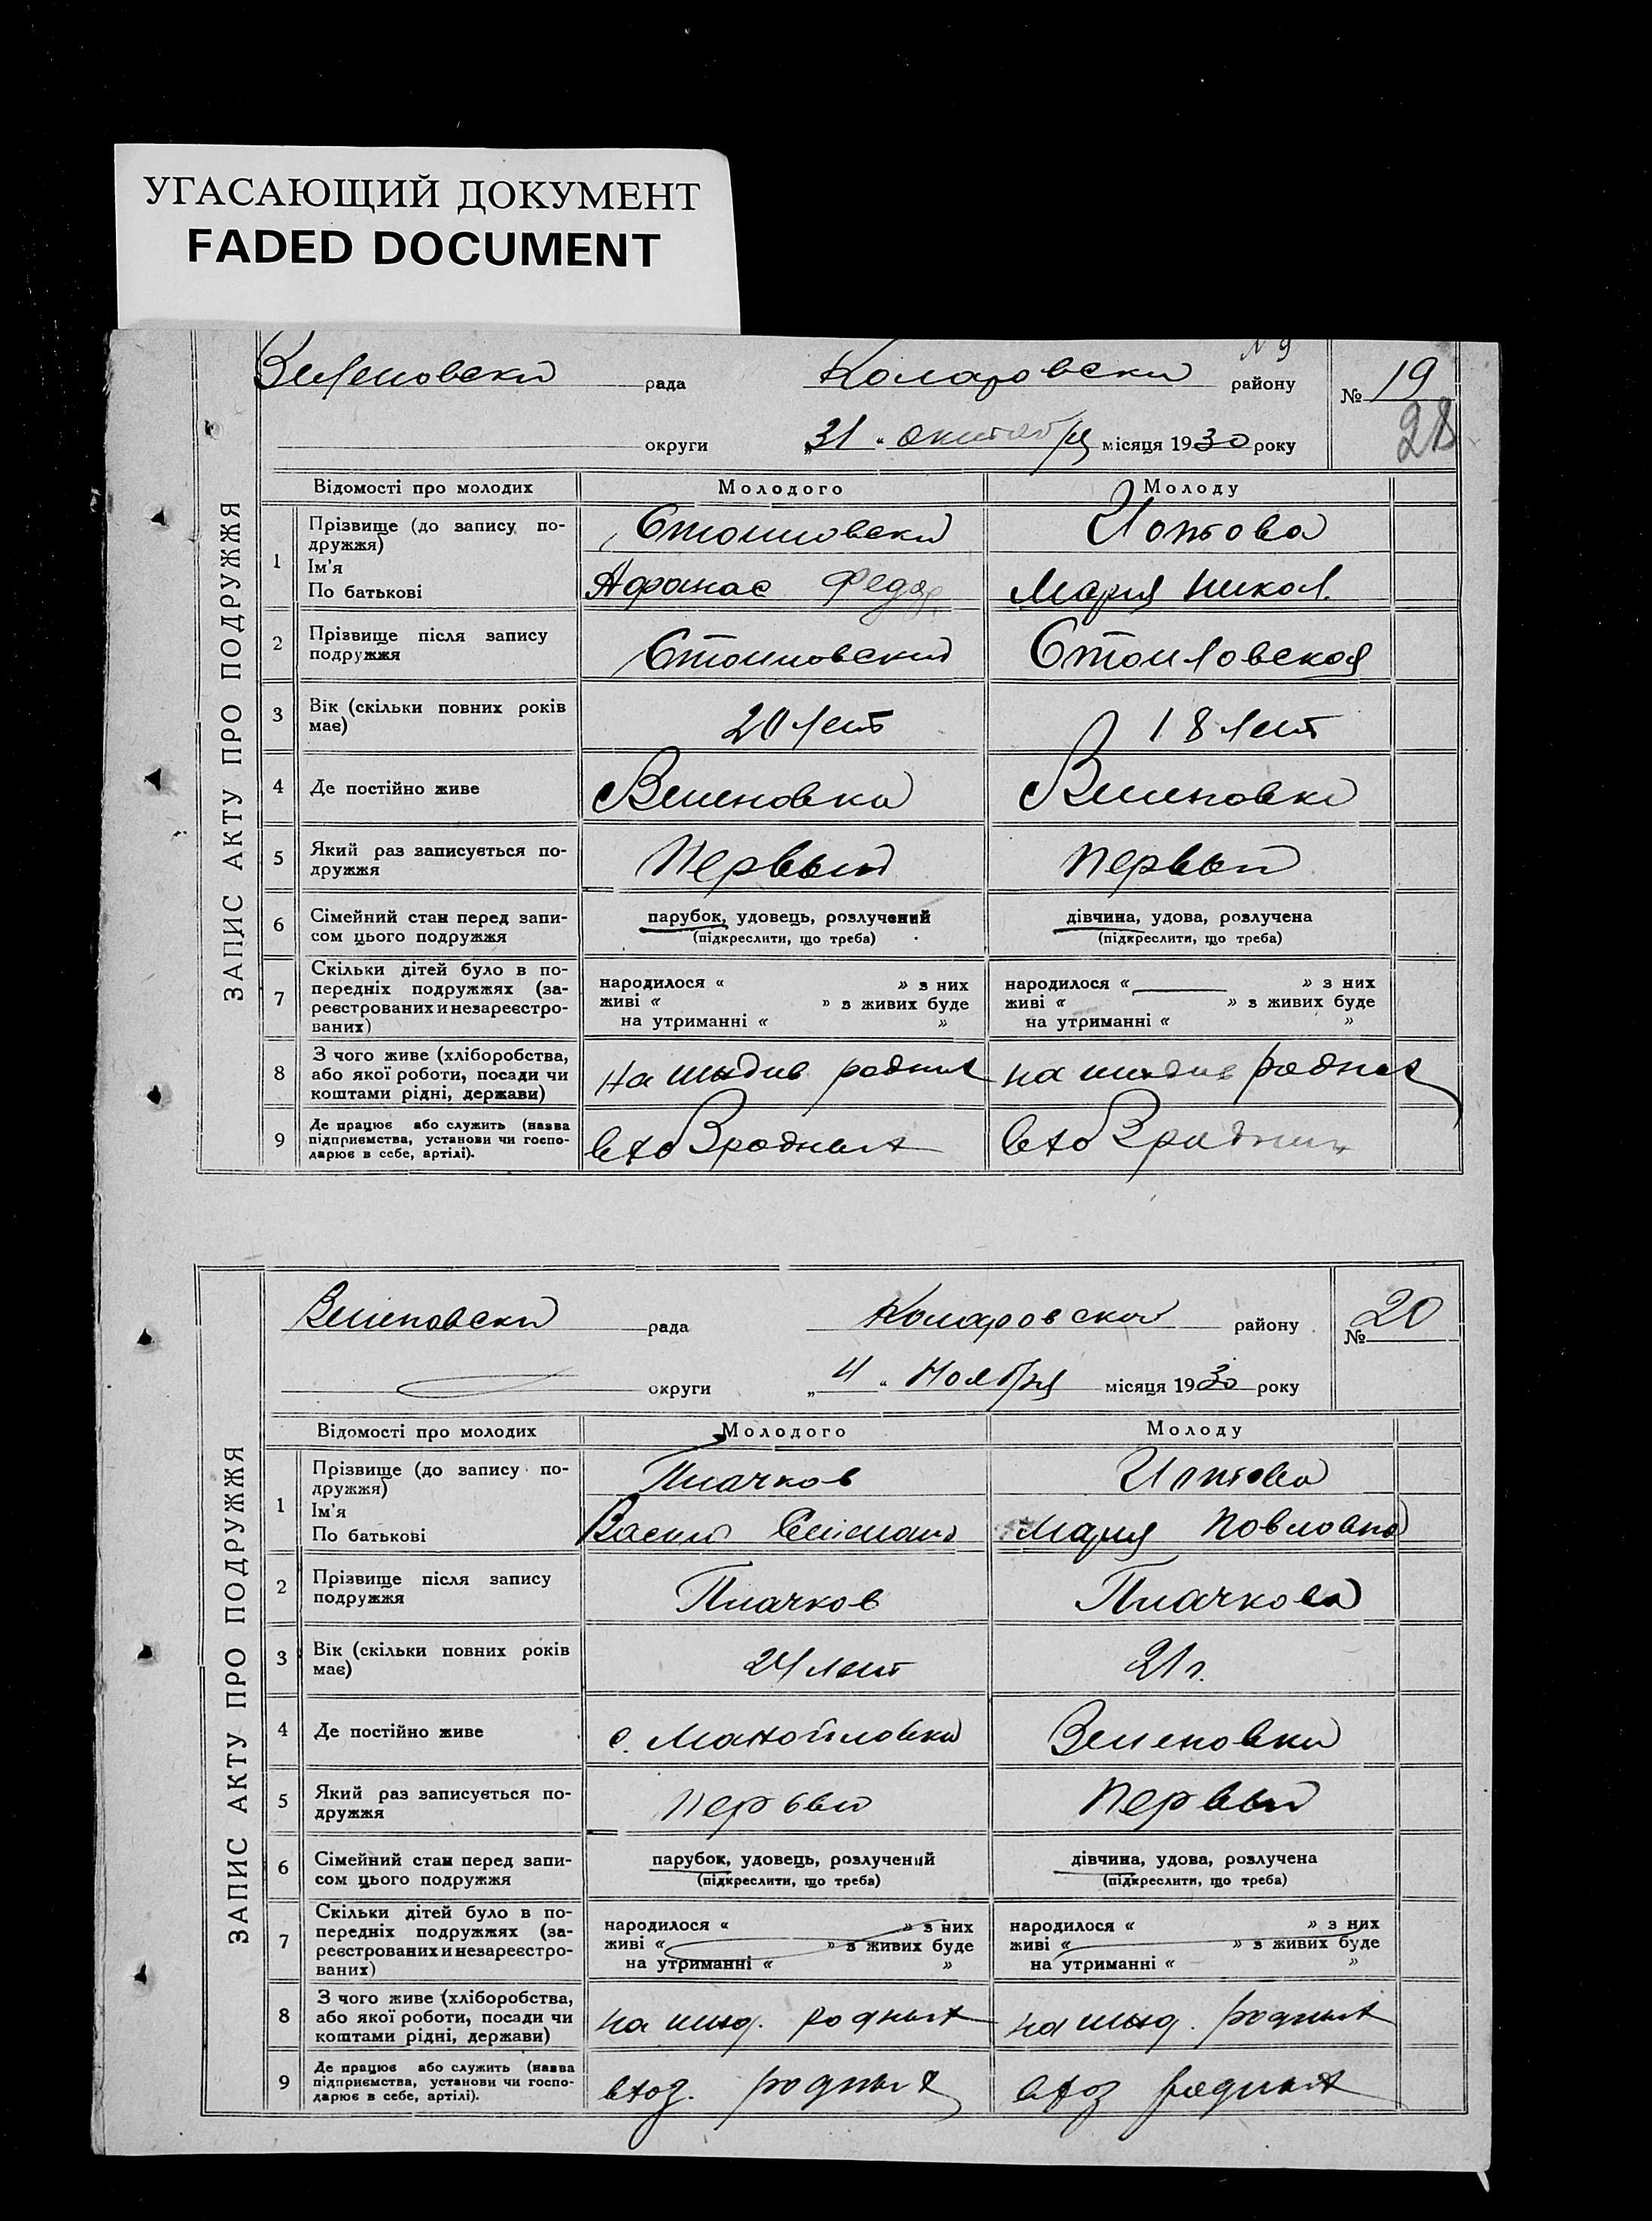 УГАСАЮЩИЙ ДОКУМЕНТ
FADED DOCUMENT
ЗАПИС АКТУ ПРО ПОДРУЖЖЯ
Зеленовски рада Коларовски району № 19
N 9
28
округи „31“ октября місяця 1930 року
Відомості про молодих Молодого Молоду
1 Прізвище (до запису по-
дружжя)
Ім'я
По батькові
Стоиловски
Афанас Федор.
Мария Никол.
2 Прізвище після запису
подружжя
Стоиловский Стоиловская
3 Вік (скільки повних років
має)
20 лет 18 лет
4 Де постійно живе Зеленовка Зеленовка
5 Який раз записується по-
дружжя
Первый Первый
6 Сімейний стан перед запи-
сом цього подружжя
парубок, удовець, розлучений
(підкреслити, що треба)
дівчина, удова, розлучена
(підкреслити, що треба)
7 Скільки дітей було в по-
передніх подружжях (за-
реєстрованих и незареєстро-
ваних)
народилося « » з них
живі « » з живих буде
на утриманні « »
народилося « » з них
живі « » з живих буде
на утриманні « »
8 З чого живе (хліборобства,
або якої роботи, посади чи
коштами рідні, держави)
на иждив родных на иждив родных
9 Де працює або служить (назва
підприємства, установи чи госпо-
дарює в себе, артілі).
в хоз родных в хоз родных
ЗАПИС АКТУ ПРО ПОДРУЖЖЯ
Зеленовски рада Коларовский району № 20
округи „4“ Ноября місяця 1930 року
Відомості про молодих Молодого Молоду
1 Прізвище (до запису по-
дружжя)
Ім'я
По батькові
Плачков
Васил
Мария Повловна
2 Прізвище після запису
подружжя
Плачков Плачкова
3 Вік (скільки повних років
має)
24 лет 21 г.
4 Де постійно живе с. Манойловка Зеленовка
5 Який раз записується по-
дружжя
Первый Первый
6 Сімейний стан перед запи-
сом цього подружжя
парубок, удовець, розлучений
(підкреслити, що треба)
дівчина, удова, розлучена
(підкреслити, що треба)
7 Скільки дітей було в по-
передніх подружжях (за-
реєстрованих и незареєстро-
ваних)
народилося « » з них
живі « » з живих буде
на утриманні « »
народилося « » з них
живі « » з живих буде
на утриманні « »
8 З чого живе (хліборобства,
або якої роботи, посади чи
коштами рідні, держави)
на ижд. родных на ижд. родных
9 Де працює або служить (назва
підприємства, установи чи госпо-
дарює в себе, артілі).
в хоз. родных в хоз родных